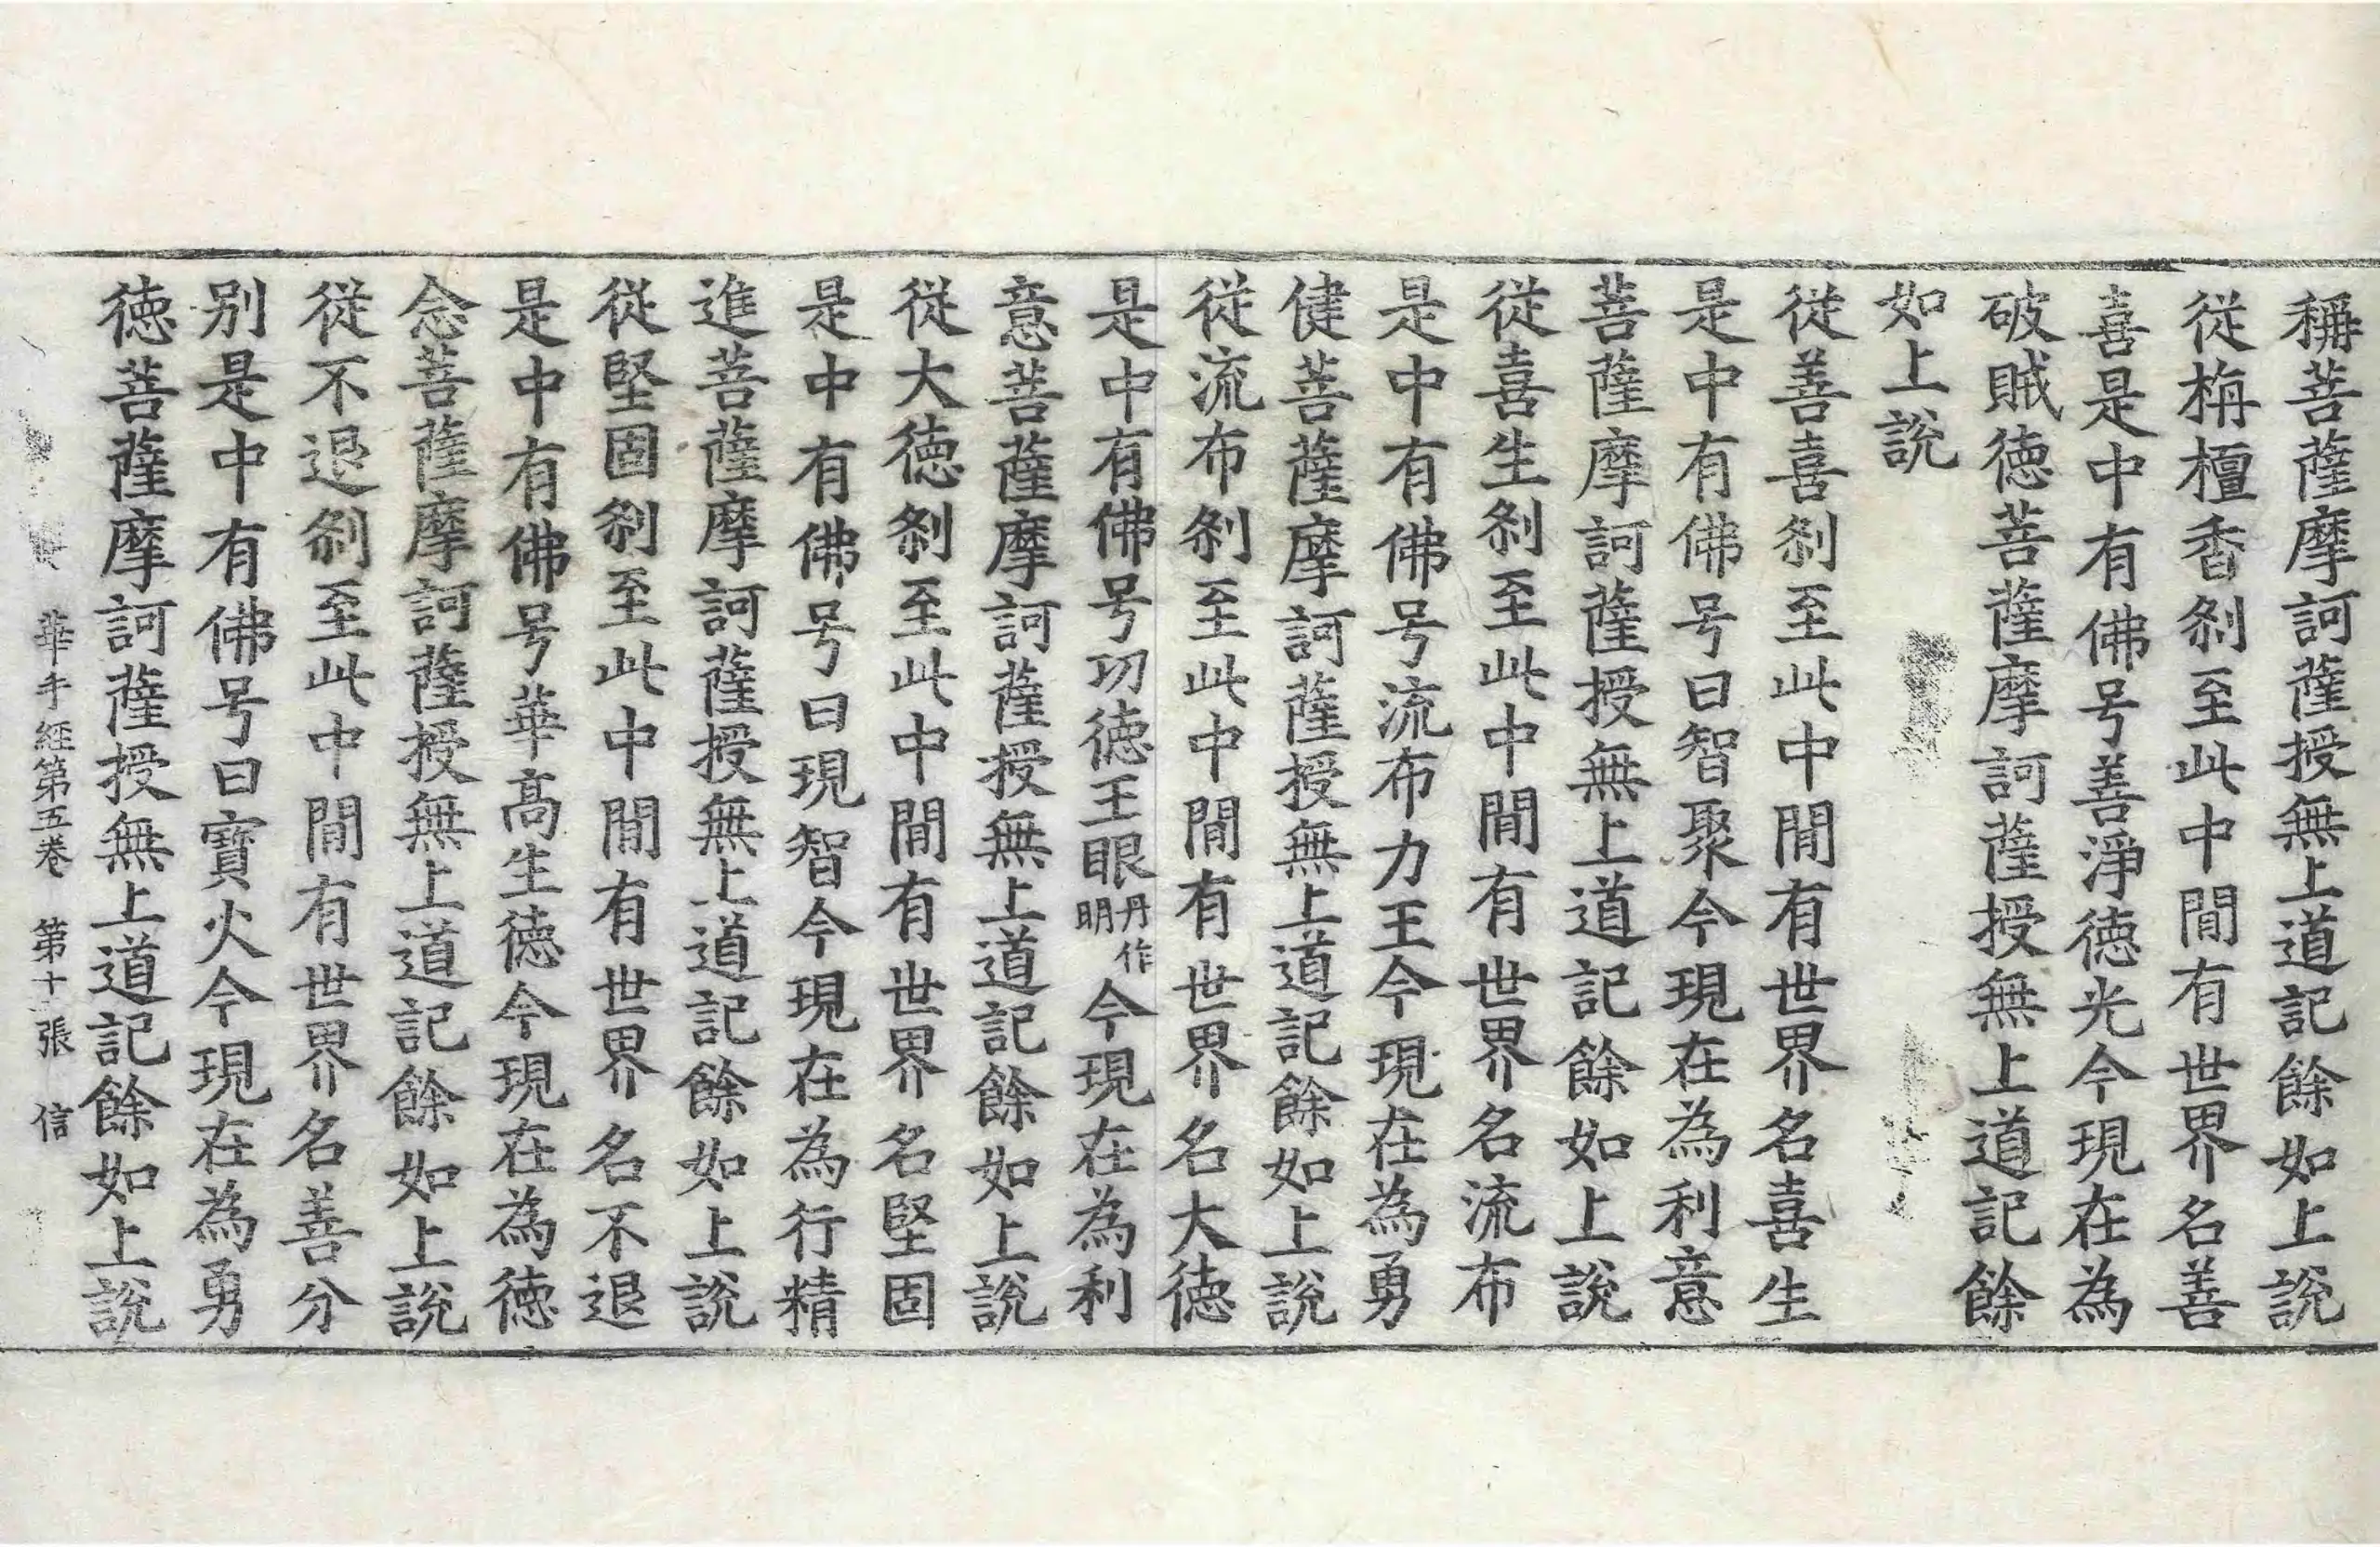 稱菩薩摩訶薩授無上道記餘如上說
從栴檀香剎至此中間有世界名善
喜是中有佛号善淨德光今現在為
破賊德菩薩摩訶薩授無上道記餘
如上說
從善喜剎至此中間有世界名喜生
是中有佛号曰智聚今現在為利意
菩薩摩訶薩授無上道記餘如上說
從喜生剎至此中間有世界名流布
是中有佛号流布力王今現在為勇
健菩薩摩訶薩授無上道記餘如上說
從流布剎至此中間有世界名大德
是中有佛号功德王眼丹作明今現在為利
意菩薩摩訶薩授無上道記餘如上說
從大德剎至此中間有世界名堅固
是中有佛号曰現智今現在為行精
進菩薩摩訶薩授無上道記餘如上說
從堅固剎至此中間有世界名不退
是中有佛号華高生德今現在為德
念菩薩摩訶薩授無上道記餘如上說
從不退剎至此中間有世界名善分
別是中有佛号曰寶火今現在為勇
德菩薩摩訶薩授無上道記餘如上說
華手經第五卷 第十張 信